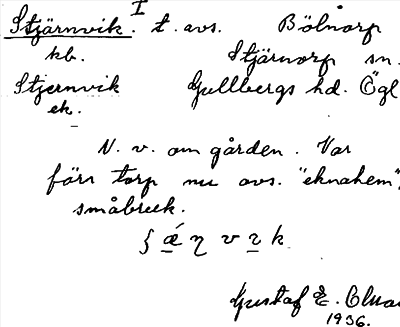 Stjärnvik. I t. avs. Bölnorp
kb. Stjärnorp sn.
Stjernvik Gullbergs hd. Ögl
ek.
N. v. om gården. Var
förr torp nu avs. "eknahem",
småbruk.
Gustaf E.
1936.